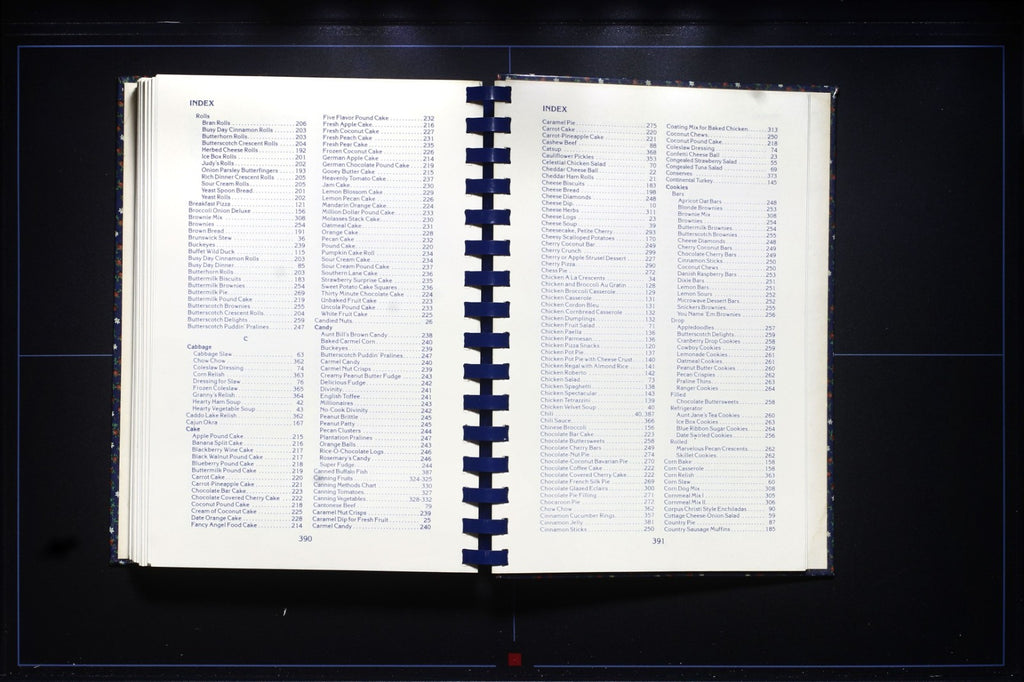 INDEX
Rolls
Bran Rolls 206
Busy Day Cinnamon Rolls 203
Butterhorn Rolls 203
Butterscotch Crescent Rolls 204
Herbed Cheese Rolls 192
Ice Box Rolls 201
Judy's Rolls 202
Onion Parsley Butterfingers 193
Rich Dinner Crescent Rolls 205
Sour Cream Rolls 205
Yeast Spoon Bread 201
Yeast Rolls 202
Breakfast Pizza 121
Broccoli Onion Deluxe 156
Brownie Mix 308
Brownies 254
Brown Bread 191
Brunswick Stew 36
Buckeyes 239
Buffet Wild Duck 115
Busy Day Cinnamon Rolls 203
Busy Day Dinner 85
Butterhorn Rolls 203
Buttermilk Biscuits 183
Buttermilk Brownies 254
Buttermilk Pie 269
Buttermilk Pound Cake 219
Butterscotch Brownies 255
Butterscotch Crescent Rolls 204
Butterscotch Delights 259
Butterscotch Puddin' Pralines 247
C
Cabbage
Cabbage Slaw 63
Chow Chow 362
Coleslaw Dressing 74
Corn Relish 363
Dressing for Slaw 76
Frozen Coleslaw 365
Granny's Relish 364
Hearty Ham Soup 42
Hearty Vegetable Soup 43
Caddo Lake Relish 362
Cajun Okra 167
Cake
Apple Pound Cake 215
Banana Split Cake 216
Blackberry Wine Cake 217
Black Walnut Pound Cake 217
Blueberry Pound Cake 218
Buttermilk Pound Cake 219
Carrot Cake 220
Carrot Pineapple Cake 221
Chocolate Bar Cake 223
Chocolate Covered Cherry Cake 222
Coconut Pound Cake 218
Cream of Coconut Cake 225
Date Orange Cake 228
Fancy Angel Food Cake 214
Five Flavor Pound Cake 232
Fresh Apple Cake 216
Fresh Coconut Cake 227
Fresh Peach Cake 231
Fresh Pear Cake 235
Frozen Coconut Cake 226
German Apple Cake 214
German Chocolate Pound Cake 219
Gooey Butter Cake 215
Heavenly Tomato Cake 237
Jam Cake 230
Lemon Blossom Cake 229
Lemon Pecan Cake 226
Mandarin Orange Cake 224
Million Dollar Pound Cake 233
Molasses Stack Cake 230
Oatmeal Cake 231
Orange Cake 228
Pecan Cake 232
Pound Cake 220
Pumpkin Cake Roll 234
Sour Cream Cake 234
Sour Cream Pound Cake 237
Southern Lane Cake 236
Strawberry Surprise Cake 235
Sweet Potato Cake Squares 236
Thirty Minute Chocolate Cake 224
Unbaked Fruit Cake 223
Uncola Pound Cake 233
White Fruit Cake 225
Candied Nuts 26
Candy
Aunt Bill's Brown Candy 238
Baked Carmel Corn 240
Buckeyes 239
Butterscotch Puddin' Pralines 247
Carmel Candy 240
Carmel Nut Crisps 239
Creamy Peanut Butter Fudge 243
Delicious Fudge 242
Divinity 241
English Toffee 241
Millionaires 243
No-Cook Divinity 242
Peanut Brittle 245
Peanut Patty 245
Pecan Clusters 244
Plantation Pralines 247
Orange Balls 243
Rice-O-Chocolate Logs 246
Rosemary's Candy 246
Super Fudge 244
Canned Buffalo Fish 387
Canning Fruits 324-325
Canning Methods Chart 330
Canning Tomatoes 327
Canning Vegetables 328-332
Cantonese Beef 79
Caramel Nut Crisps 239
Caramel Dip for Fresh Fruit 25
Carmel Candy 240
390
INDEX
Caramel Pie 275
Carrot Cake 220
Carrot-Pineapple Cake 221
Cashew Beef 88
Catsup 368
Cauliflower Pickles 353
Celestial Chicken Salad 70
Cheddar Cheese Ball 22
Cheddar Ham Rolls 21
Cheese Biscuits 183
Cheese Bread 198
Cheese Diamonds 248
Cheese Dip 10
Cheese Herbs 311
Cheese Logs 23
Cheese Soup 39
Cheesecake, Petite Cherry 293
Cheesy Scalloped Potatoes 170
Cherry Coconut Bar 249
Cherry Crunch 299
Cherry or Apple Strusel Dessert 227
Cherry Pizza 290
Chess Pie 272
Chicken A La Crescents 34
Chicken and Broccoli Au Gratin 128
Chicken Broccoli Casserole 129
Chicken Casserole 131
Chicken Cordon Bleu 131
Chicken Cornbread Casserole 132
Chicken Dumplings 132
Chicken Fruit Salad 71
Chicken Paella 136
Chicken Parmesan 136
Chicken Pizza Snacks 120
Chicken Pot Pie 137
Chicken Pot Pie with Cheese Crust 140
Chicken Regal with Almond Rice 141
Chicken Roberto 142
Chicken Salad 73
Chicken Spaghetti 138
Chicken Spectacular 143
Chicken Tetrazzini 139
Chicken Velvet Soup 40
Chili 40, 387
Chili Sauce 366
Chinese Broccoli 156
Chocolate Bar Cake 223
Chocolate Buttersweets 258
Chocolate Cherry Bars 249
Chocolate Nut Pie 274
Chocolate-Coconut Bavarian Pie 270
Chocolate Coffee Cake 222
Chocolate Covered Cherry Cake 222
Chocolate French Silk Pie 269
Chocolate Glazed Eclairs 300
Chocolate Pie Filling 271
Chocaroon Pie 272
Chow Chow 362
Cinnamon Cucumber Rings 357
Cinnamon Jelly 381
Cinnamon Sticks 250
Coating Mix for Baked Chicken 313
Coconut Chews 250
Coconut Pound Cake 218
Coleslaw Dressing 74
Confetti Cheese Ball 23
Congealed Strawberry Salad 55
Congealed Tuna Salad 69
Conserves 373
Continental Turkey 145
Cookies
Bars
Apricot Oat Bars 248
Blonde Brownies 253
Brownie Mix 308
Brownies 254
Buttermilk Brownies 254
Butterscotch Brownies 255
Cheese Diamonds 248
Cherry Coconut Bars 249
Chocolate Cherry Bars 249
Cinnamon Sticks 250
Coconut Chews 250
Danish Raspberry Bars 253
Dixie Bars 251
Lemon Bars 251
Lemon Sours 252
Microwave Dessert Bars 252
Snickers Brownies 255
You Name 'Em Brownies 256
Drop
Appledoodles 257
Butterscotch Delights 259
Cranberry Drop Cookies 258
Cowboy Cookies 259
Lemonade Cookies 261
Oatmeal Cookies 261
Peanut Butter Cookies 260
Pecan Crispies 262
Praline Thins 263
Ranger Cookies 264
Filled
Chocolate Buttersweets 258
Refrigerator
Aunt Jane's Tea Cookies 260
Ice Box Cookies 263
Blue Ribbon Sugar Cookies 264
Date Swirled Cookies 256
Rolled
Marvelous Pecan Crescents 262
Skillet Cookies 262
Corn Bake 308
Corn Casserole 158
Corn Relish 363
Corn Slaw 60
Corn Dog Mix 308
Cornmeal Mix I 305
Cornmeal Mix II 306
Corpus Christi Style Enchiladas 90
Cottage Cheese-Onion Salad 59
Country Pie 87
Country Sausage Muffins 185
391